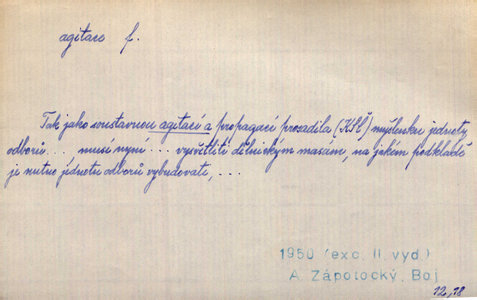 agitace f.
Tak jako soustavnou agitací a propagací prosadila (KSČ) myšlenku jednoty
odborů ... musí nyní ... vysvětliti dělnickým masám, na jakém podkladě
je nutno jednotu odborů vybudovati, ...
1950 (exc. II. vyd.)
A. Zápotocký, Boj
12,18